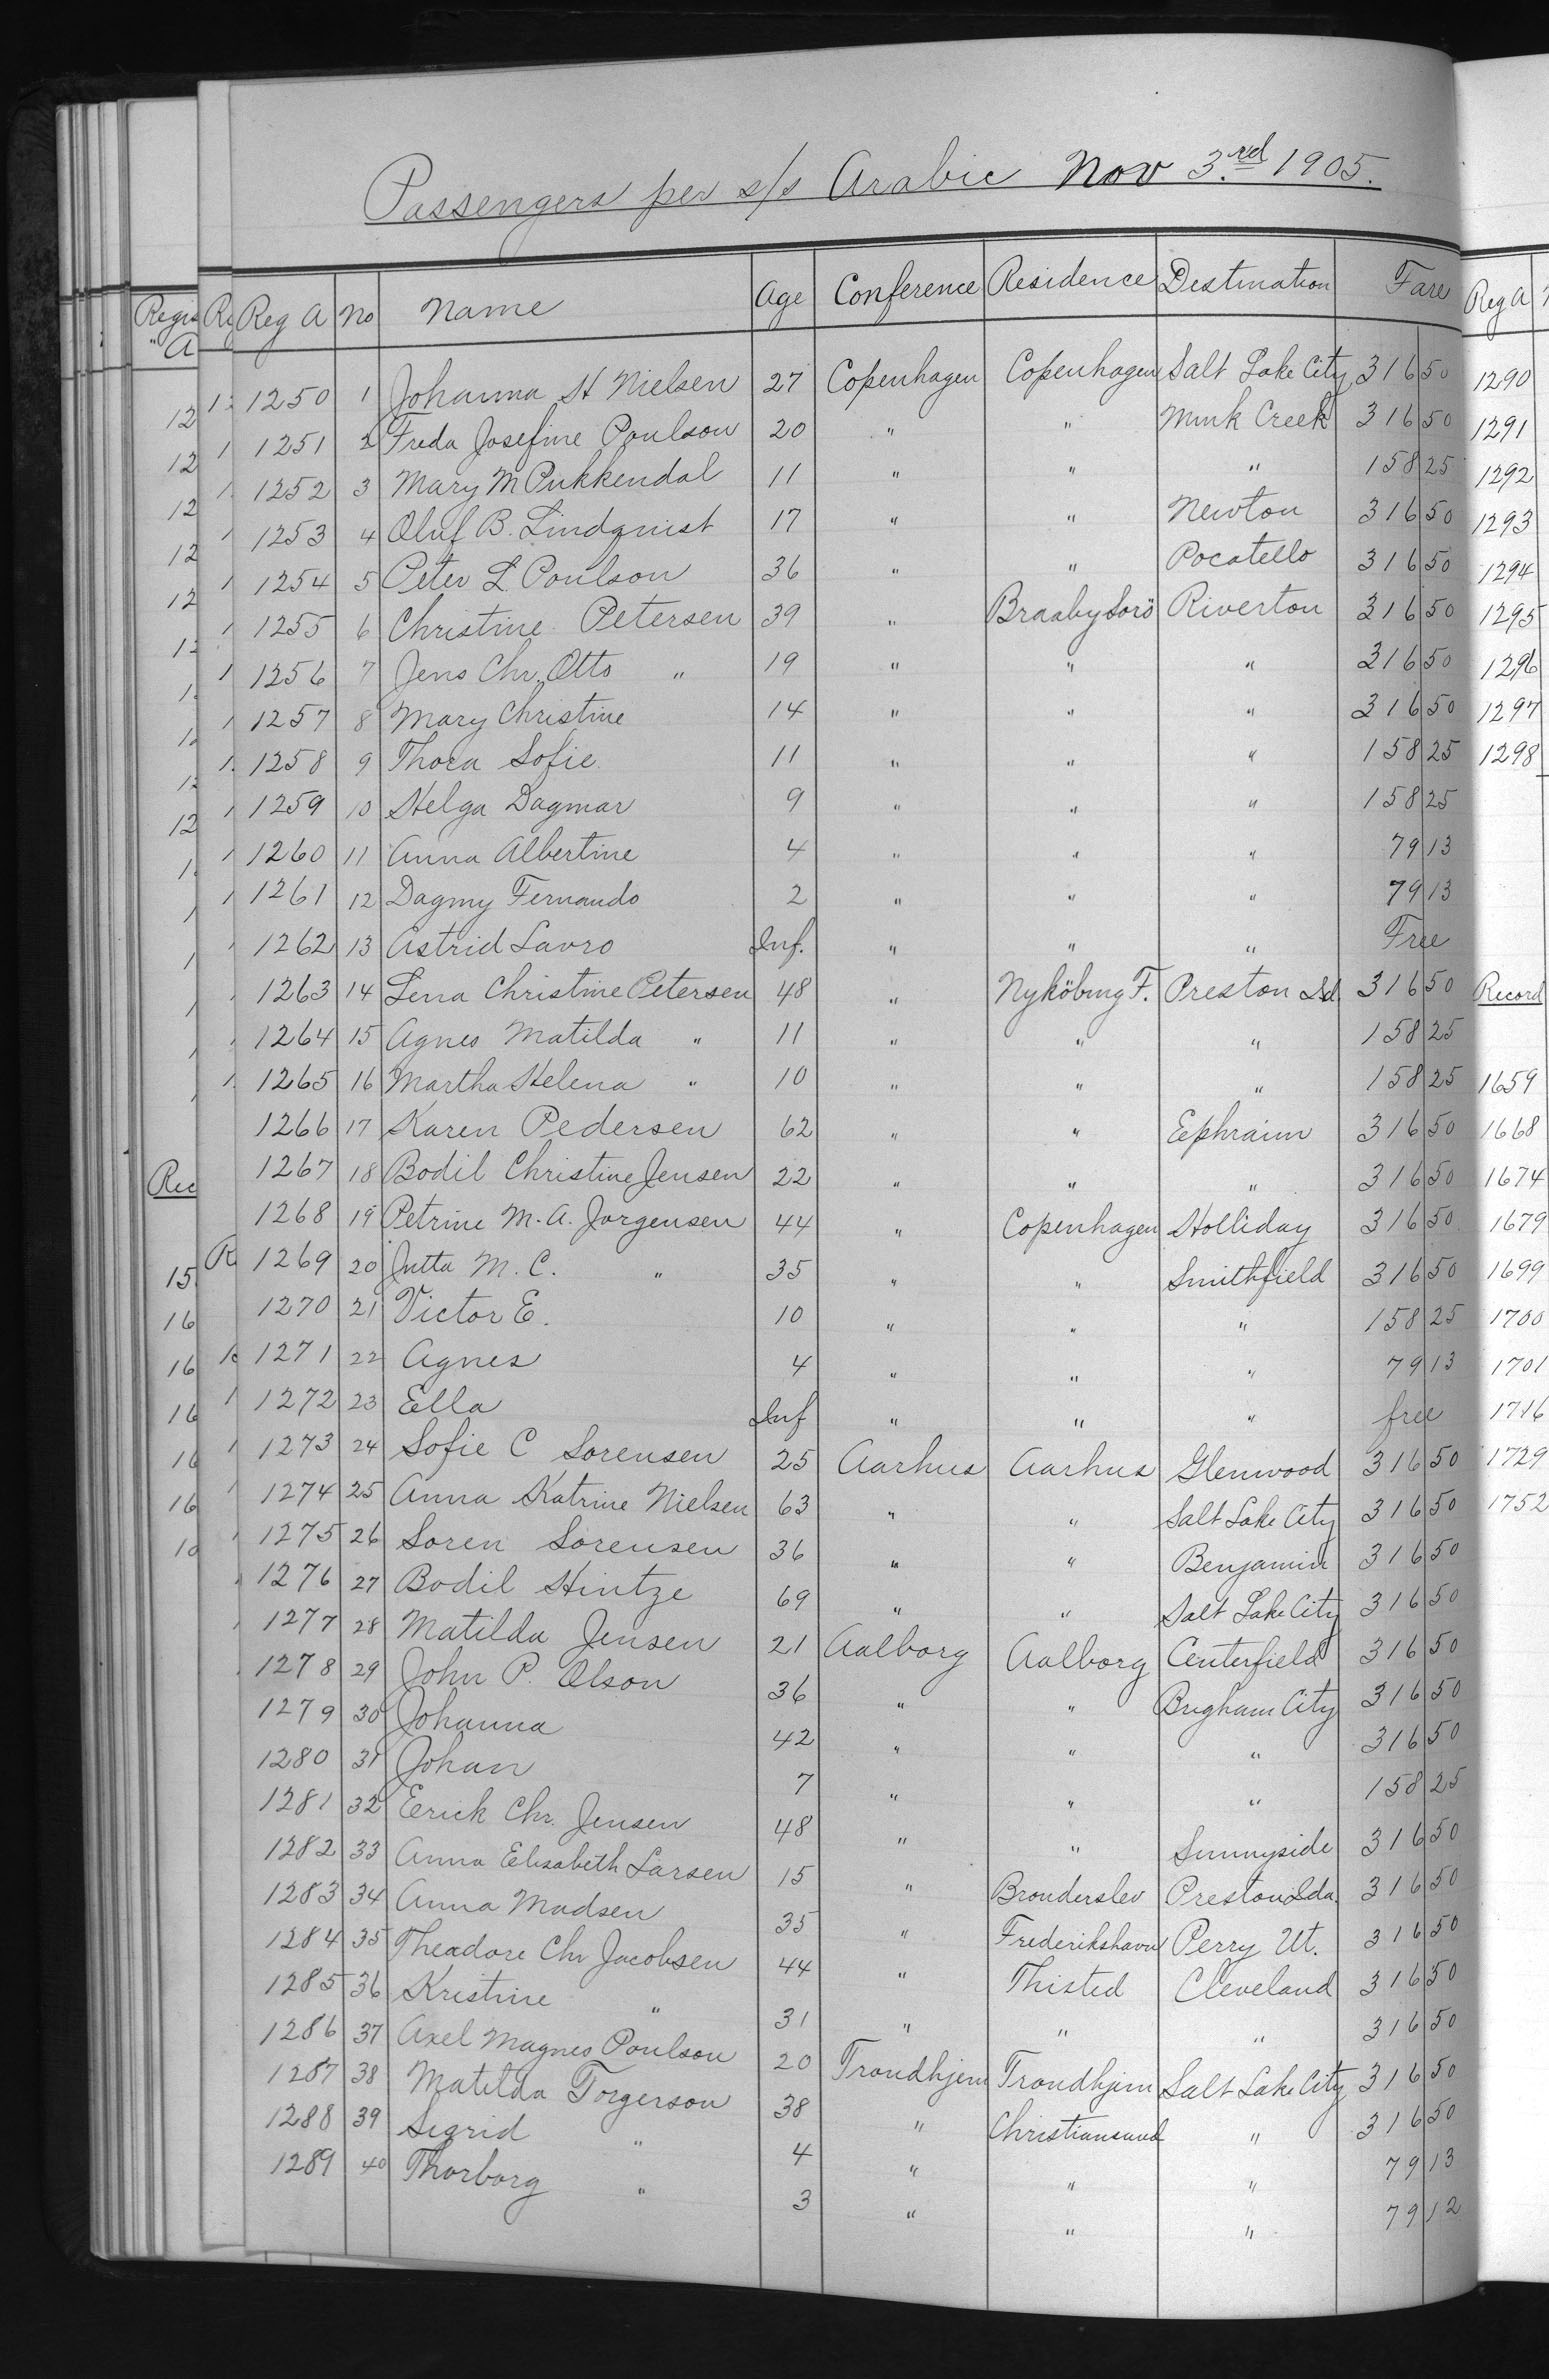 Passengers per s/s Arabic Nov 3.rd 1905.
Reg A No Name Age Conference Residence Destination Fare
1250 1 Johanna H Nielsen 27 Copenhagen Copenhagen Salt Lake City 316 50
1251 2 Freda Josefine Poulson 20 " " Mink Creek 316 50
1252 3 Mary M Pukkendal 11 " " " 158 25
1253 4 Oluf B. Lindquist 17 " " Newton 316 50
1254 5 Peter L Poulson 36 " " Pocatello 316 50
1255 6 Christine Petersen 39 " Braaby Sorö Riverton 316 50
1256 7 Jens Chr. Otto " 19 " " " 316 50
1257 8 Mary Christine 14 " " " 316 50
1258 9 Thora Sofie 11 " " " 158 25
1259 10 Helga Dagmar 9 " " " 158 25
1260 11 Anna Albertine 4 " " " 79 13
1261 12 Dagmy Fernando 2 " " " 79 13
1262 13 Astrid Lavro Inf. " " " Free
1263 14 Lena Christine Petersen 48 " Nyköbing F. Preston Id. 316 50
1264 15 Agnes Matilda " 11 " " " 158 25
1265 16 Martha Helena " 10 " " " 158 25
1266 17 Karen Pedersen 62 " " Ephraim 316 50
1267 18 Bodil Christine Jensen 22 " " " 316 50
1268 19 Petrine M. A. Jorgensen 44 " Copenhagen Holliday 316 50
1269 20 Jutta M. C. " 35 " " Smithfield 316 50
1270 21 Victor E. 10 " " " 158 25
1271 22 Agnes 4 " " " 79 13
1272 23 Ella Inf " " " free
1273 24 Sofie C Sorensen 25 Aarhus Aarhus Glenwood 316 50
1274 25 Anna Katrine Nielsen 63 " " Salt Lake City 316 50
1275 26 Soren Sorensen 36 " " Benjamin 316 50
1276 27 Bodil Hintze 69 " " Salt Lake City 316 50
1277 28 Matilda Jensen 21 Aalborg Aalborg Centerfield 316 50
1278 29 John P. Olson 36 " " Brigham City 316 50
1279 30 Johanna 42 " " " 316 50
1280 31 Johan 7 " " " 158 25
1281 32 Eerick Chr. Jensen 48 " " Sunnyside 316 50
1282 33 Anna Elisabeth Larsen 15 " Bronderslev Preston Ida. 316 50
1283 34 Anna Madsen 35 " Frederikshavn Perry Ut. 316 50
1284 35 Theadore Chr Jacobsen 44 " Thisted Cleveland 316 50
1285 36 Kristine " 31 " " " 316 50
1286 37 Axel Magnes Poulson 20 Trondhjem Trondhjem Salt Lake City 316 50
1287 38 Matilda Torgerson 38 " Christiansund " 316 50
1288 39 Sigrid " 4 " " " 79 13
1289 40 Thorborg " 3 " " " 79 12
Reg A
1290
1291
1292
1293
1294
1295
1296
1297
1298
Record
1659
1668
1674
1679
1699
1700
1701
1716
1729
1752